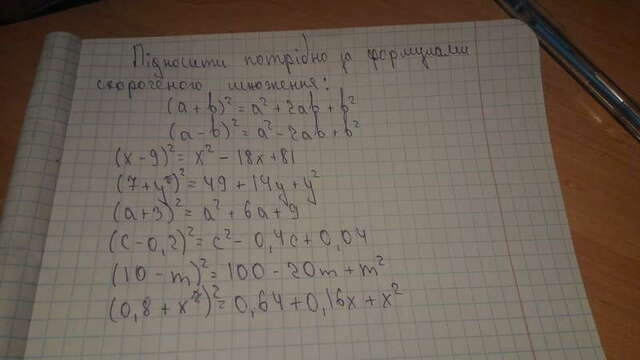 Підносити потрібно за формулами
скороченого множення:
(a + b)² = a² + 2ab + b²
(a - b)² = a² - 2ab + b²
(x - 9)² = x² - 18x + 81
(7 + y)² = 49 + 14y + y²
(a + 3)² = a² + 6a + 9
(c - 0,2)² = c² - 0,4c + 0,04
(10 - m)² = 100 - 20m + m²
(0,8 + x)² = 0,64 + 0,16x + x²